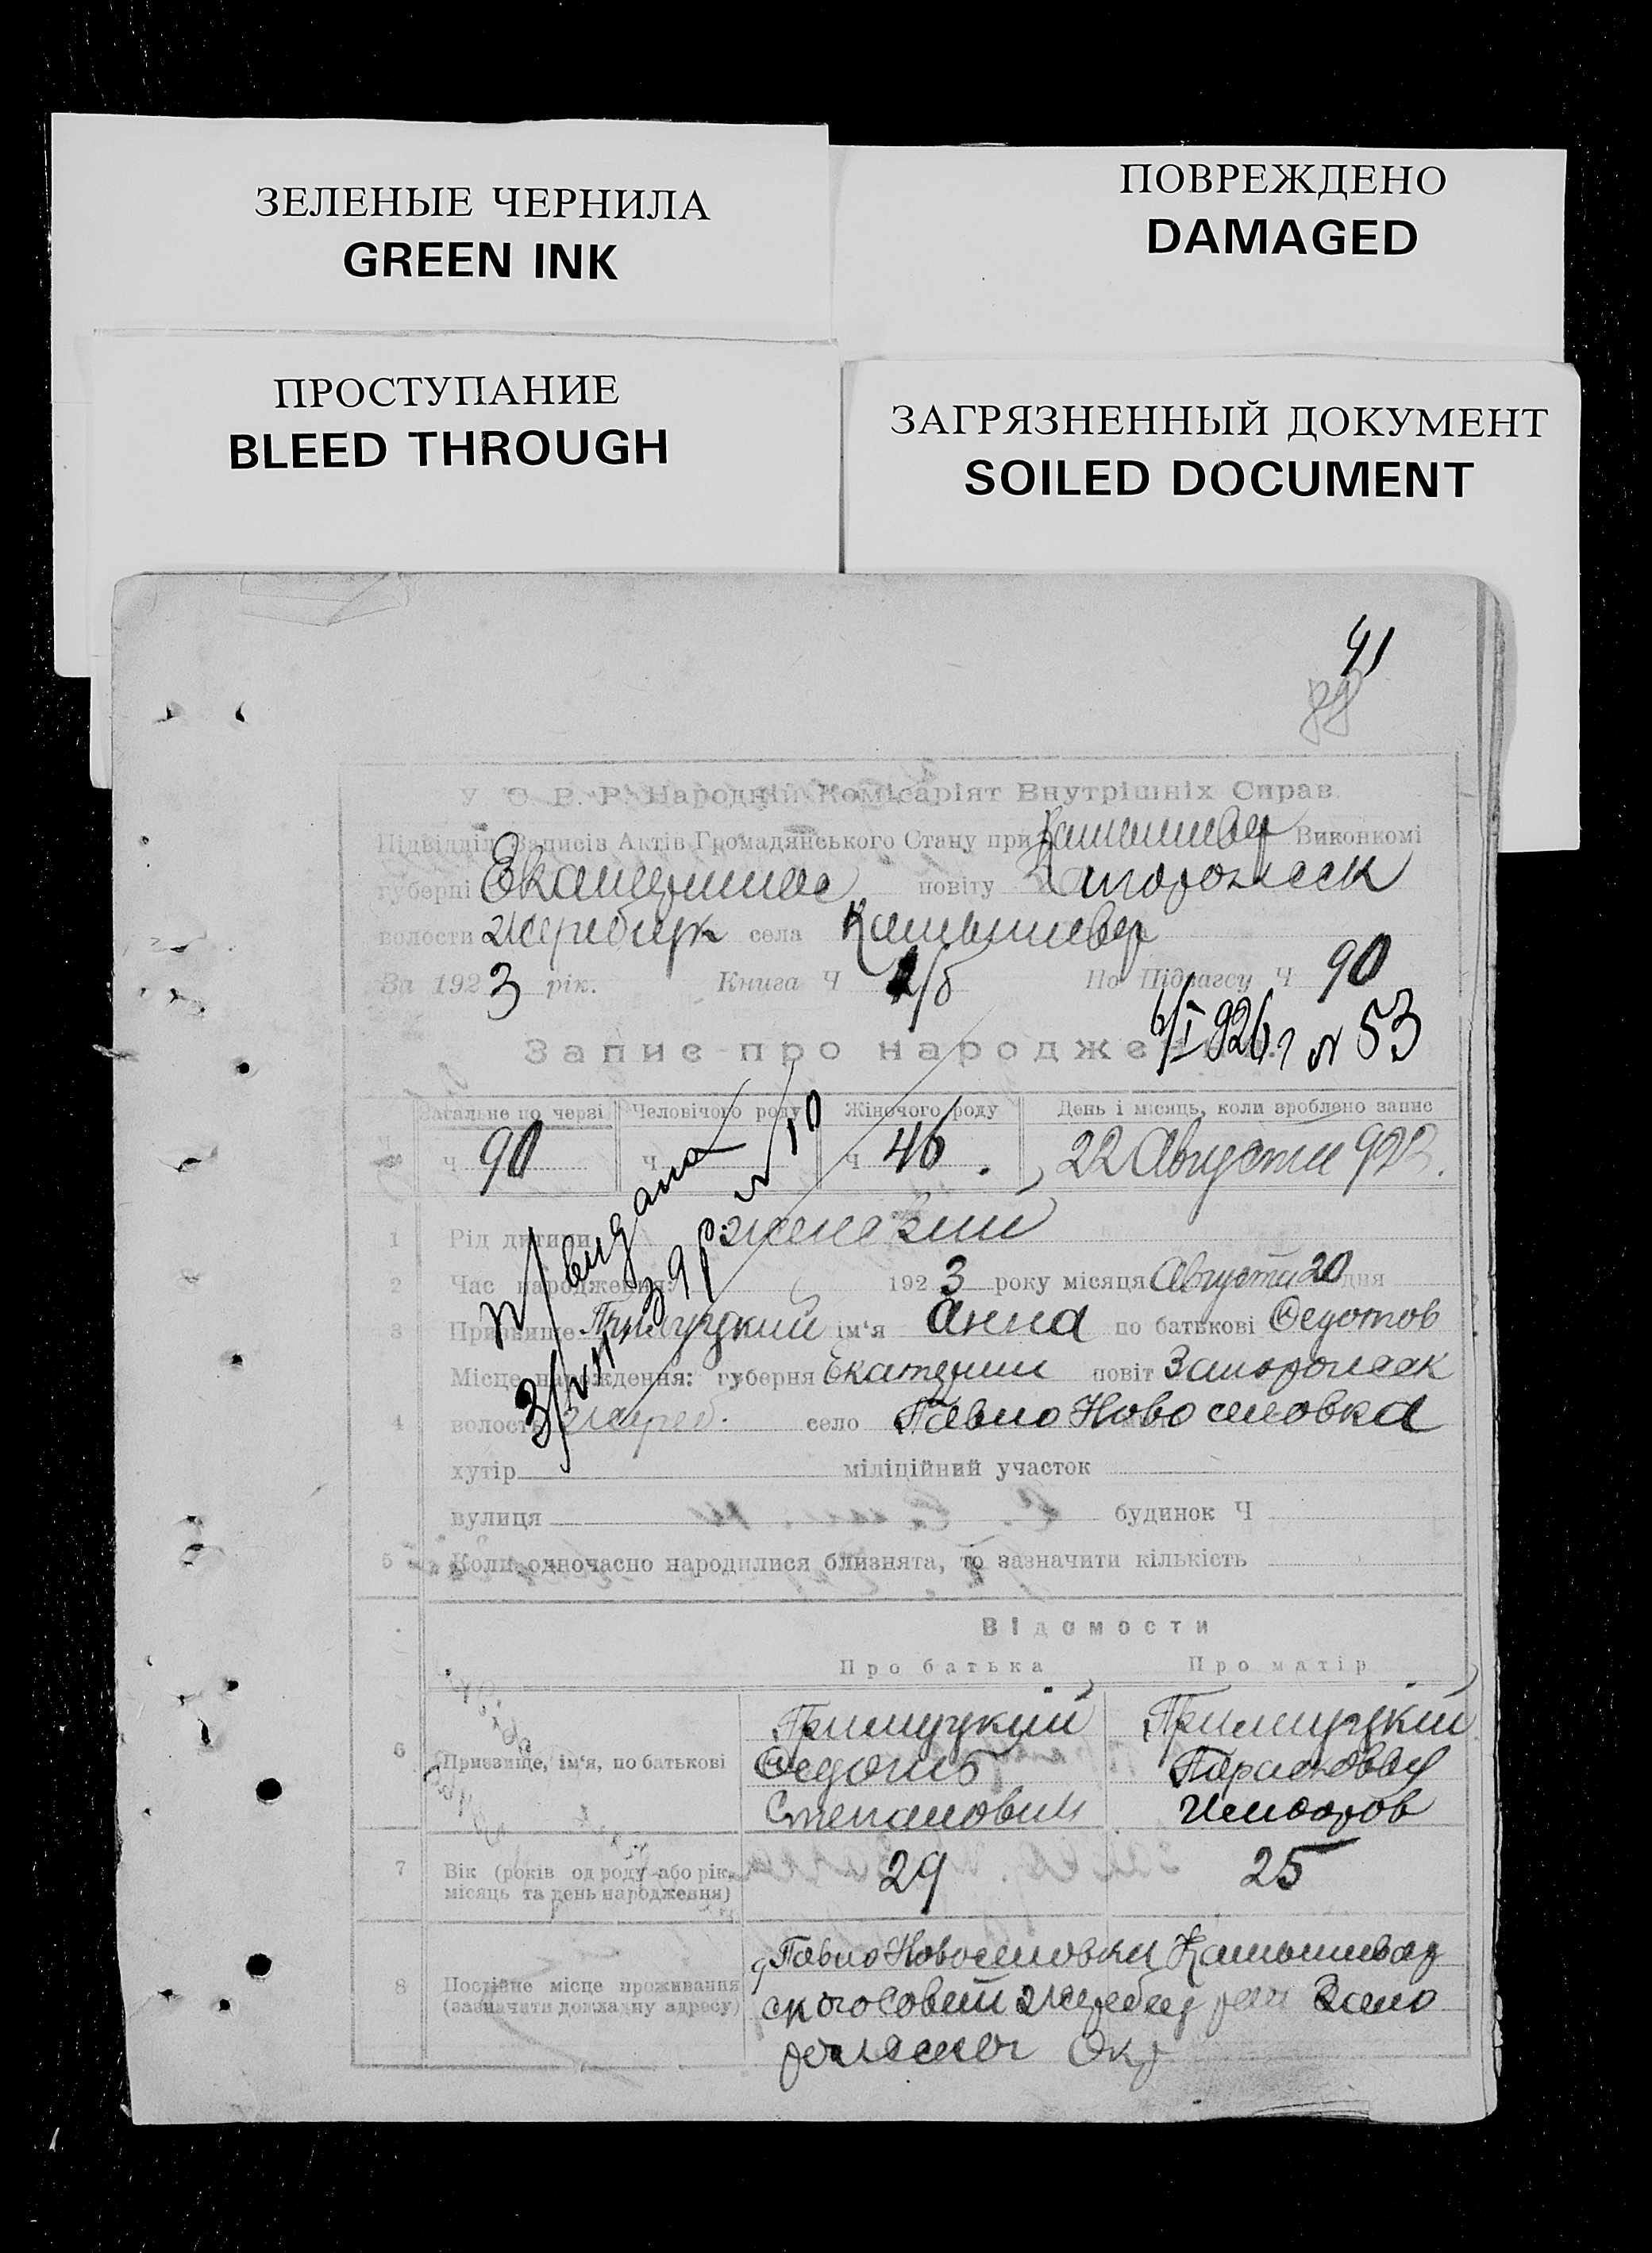 ЗЕЛЕНЫЕ ЧЕРНИЛА
GREEN INK
ПОВРЕЖДЕНО
DAMAGED
ПРОСТУПАНИЕ
BLEED THROUGH
ЗАГРЯЗНЕННЫЙ ДОКУМЕНТ
SOILED DOCUMENT
41
У С. Р. Р. Народній Комісаріят Внутрішніх Справ
Підвідділ Записів Актів Громадянського Стану при Камышевах Виконкомі
губерні Екатеринос повіту Запорожск
волости Жеребецк села Камышевах
За 1923 рік. Книга Ч 1/б По Підлагсу Ч 90
6/I 926 г № 53
Запис про народже
Загальне по черзі Человічого роду Жіночого роду День і місяць, коли зроблено запис
Ч 90 Ч Ч 46. 22 Августа 923.
1 Рід дитини женский
2 Час народження: 1923 року місяця Августа 20 дня
3 Призвище Примуцкий ім'я Анна по батькові Федотов
Місце народження: губерня Екатерин повіт Запорожск
4 волость Жереб. село Павло Новоселовка
хутір міліційний участок
вулиця будинок Ч
5 Коли одночасно народилися близнята, то зазначити кількість
Відомости
Про батька Про матір
6 Призвище, ім'я, по батькові Примуцкий Примуцкий
Федотъ Парасковья
Степанович
7 Вік (років од роду або рік, місяць та день народження) 29 25
8 Постійне місце проживання (зазначати докладну адресу) Павло Новоселовки Камышевах
ского Совети Жеребец рай Запо
рожской Окр